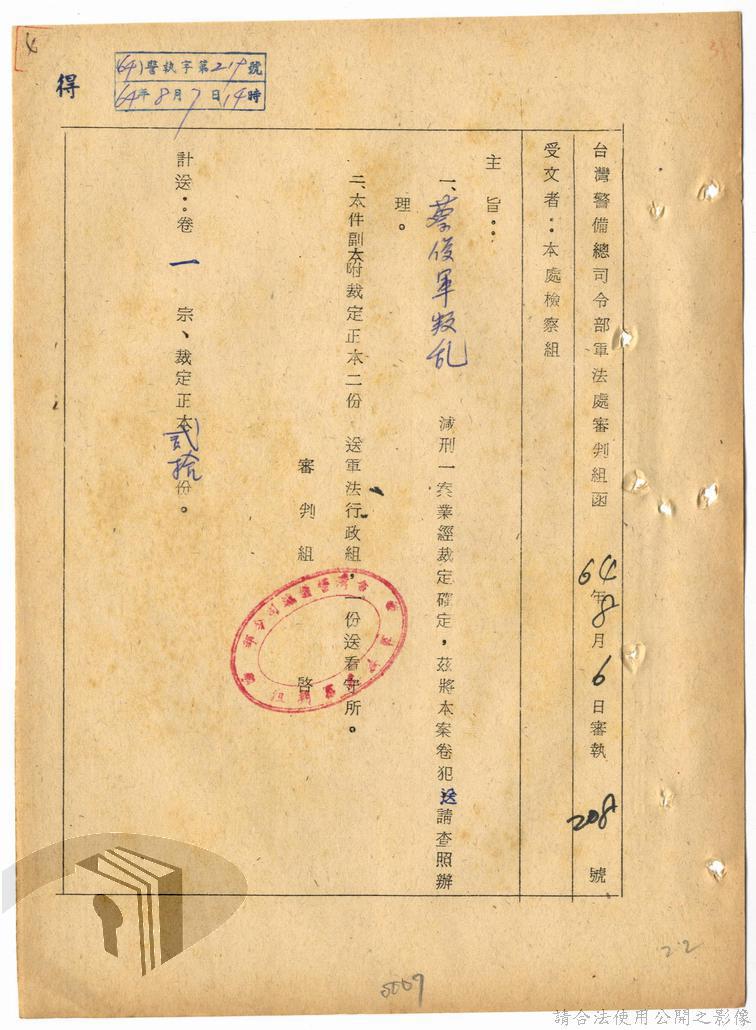 台灣警備總司令部軍法處審判組函 64年8月6日審執 208 號
受文者：本處檢察組
主旨：
一、蔡俊軍叛乱 減刑一案業經裁定確定，茲將本案卷犯送請查照辦
理。
二、本件副本附裁定正本二份 送軍法行政組，一份送看守所。
審判組 啓
計送：卷 一 宗、裁定正本貳拾份。
(64)警執字第219號
64年8月7日14時
得
0007
22
請合法使用公開之影像